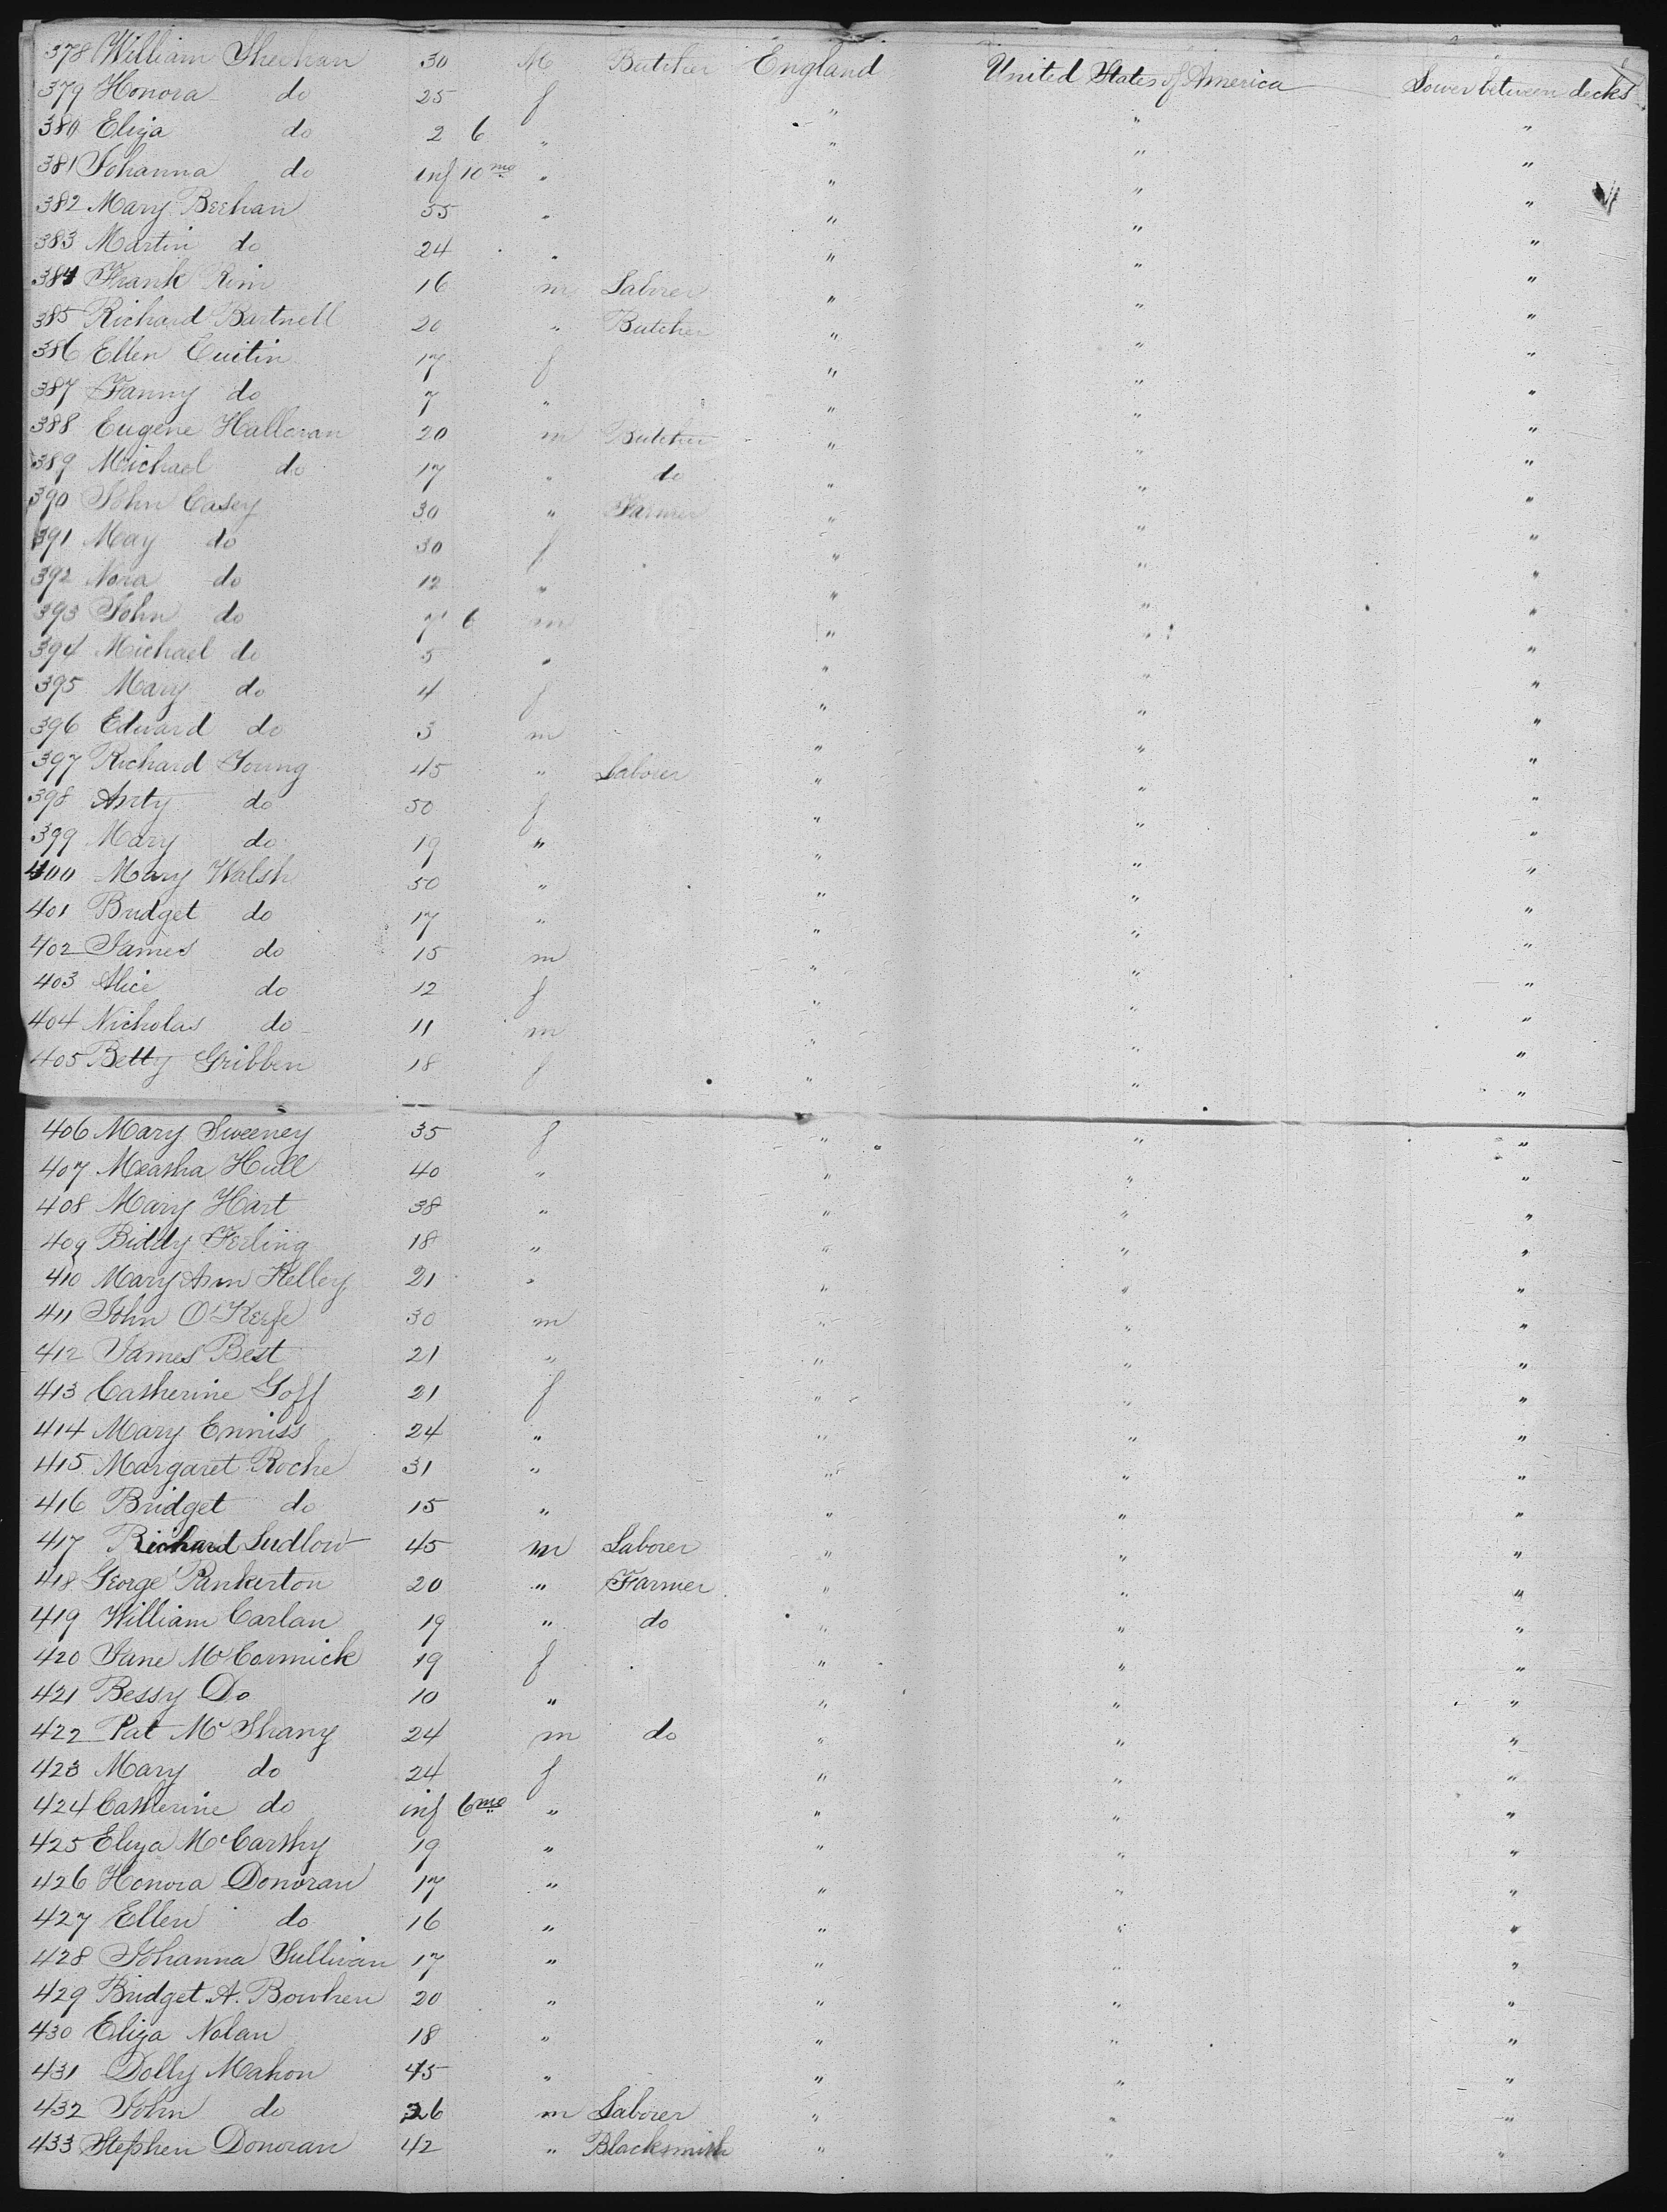 378 William Sheehan 30 M Butcher England United States of America Lower between decks
379 Honora do 25 f " " "
380 Eliza do 2 6 " " " "
381 Johanna do inf 10 mo " " " "
382 Mary Beehan 55 " " " "
383 Martin do 24 " " " "
384 Frank Rim 16 m Laborer " " "
385 Richard Bartnell 20 " Butcher " " "
386 Ellen Cuitin 17 f " " "
387 Fanny do 7 " " " "
388 Eugene Halloran 20 m Butcher " " "
389 Michael do 17 " do " " "
390 John Casey 30 " Farmer " " "
391 May do 30 f " " "
392 Nora do 12 " " " "
393 John do 7 6 m " " "
394 Michael do 5 " " " "
395 Mary do 4 f " " "
396 Edward do 3 m " " "
397 Richard Young 45 " Laborer " " "
398 Anty do 50 f " " "
399 Mary do 19 " " " "
400 Mary Walsh 50 " " " "
401 Bridget do 17 " " " "
402 James do 15 m " " "
403 Alice do 12 f " " "
404 Nicholas do 11 m " " "
405 Betty Gribben 18 f " " "
406 Mary Sweeney 35 f " " "
407 Measha Hull 40 " " " "
408 Mary Hart 38 " " " "
409 Biddy Ferling 18 " " " "
410 Mary Ann Kelley 21 " " " "
411 John O'Keefe 30 m " " "
412 James Best 21 " " " "
413 Catherine Goff 21 f " " "
414 Mary Enniss 24 " " " "
415 Margaret Roche 31 " " " "
416 Bridget do 15 " " " "
417 Richard Ludlow 45 m Laborer " " "
418 George Pankerton 20 " Farmer " " "
419 William Carlan 19 " do " " "
420 Jane McCormick 19 f " " "
421 Bessy Do 10 " " " "
422 Pat McShany 24 m do " " "
423 Mary do 24 f " " "
424 Catherine do inf 6 mo " " " "
425 Eliza McCarthy 19 " " " "
426 Honora Donovan 17 " " " "
427 Ellen do 16 " " " "
428 Johanna Sullivan 17 " " " "
429 Bridget A. Bowhen 20 " " " "
430 Eliza Nolan 18 " " " "
431 Dolly Mahon 45 " " " "
432 John do 26 m Laborer " " "
433 Stephen Donovan 42 " Blacksmith " " "